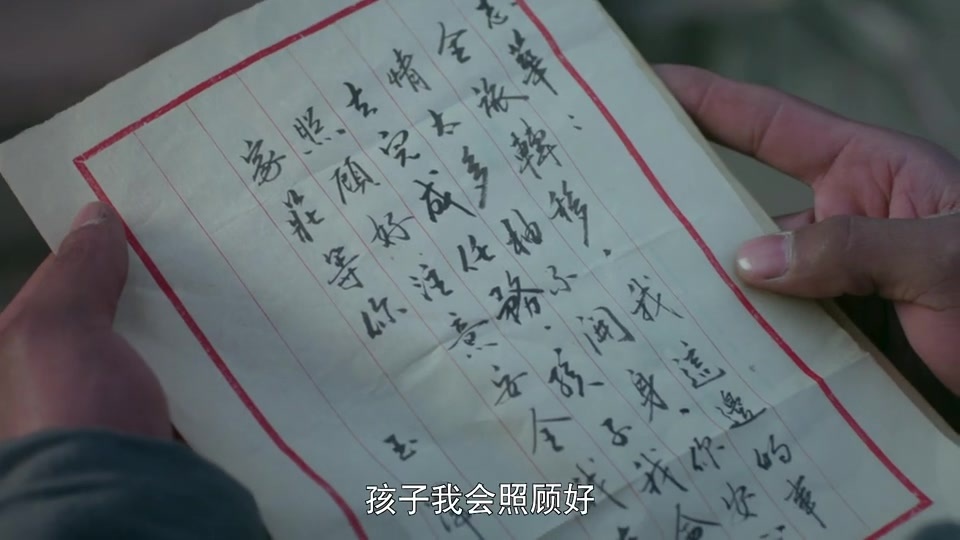 志華：
全旅轉移，我這邊的事
情太多抽不開身，你安
去完成任務，孩子我會
照顧好，注意安全
家莊等你
玉
孩子我会照顾好